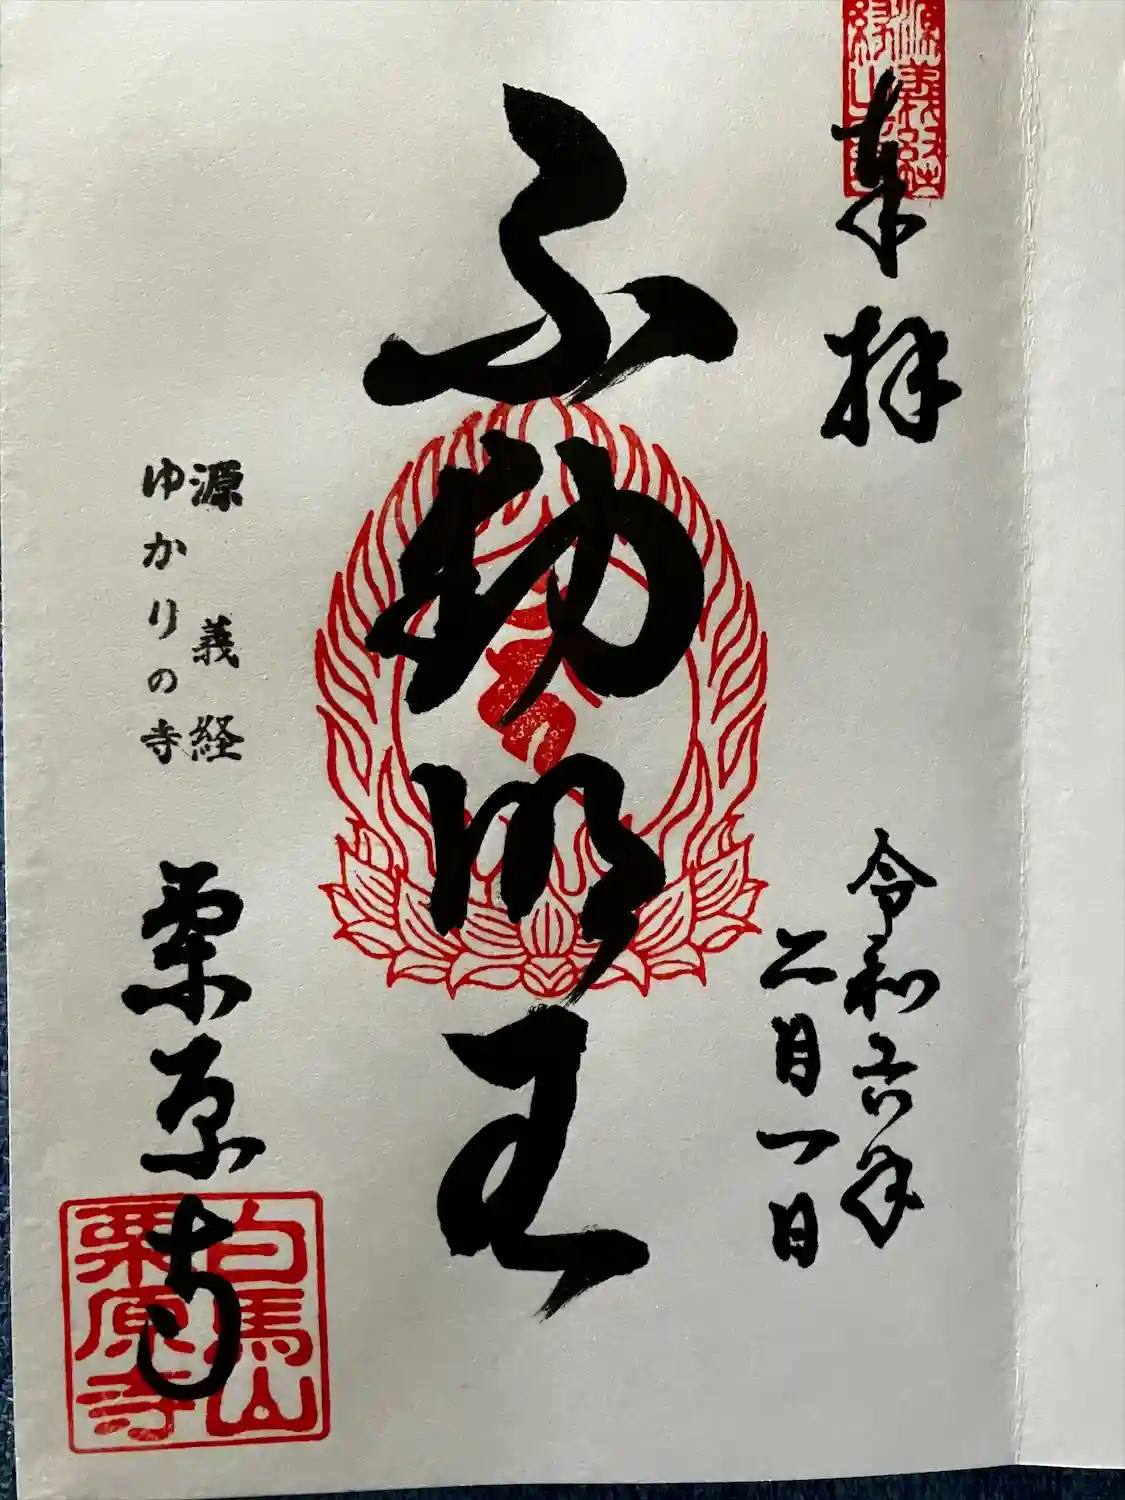 奉拝
令和六年
二月一日
不動明王
源義経
ゆかりの寺
栗原寺
白馬山
栗原寺